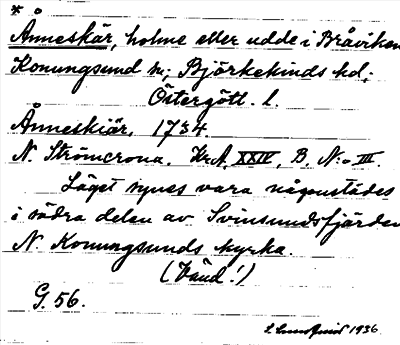 *
Ånneskär, holme eller udde i Bråviken
Konungsund sn; Björkekinds hd;
Östergötl. l.
Ånneskiär, 1734.
N. Strömcrona. Kr.A. XXIV, B, N:o III.
Läget synes vara någonstädes
i södra delen av Svinsundsfjärden
N Konungsunds kyrka.
(Vänd!)
G. 56.
1936